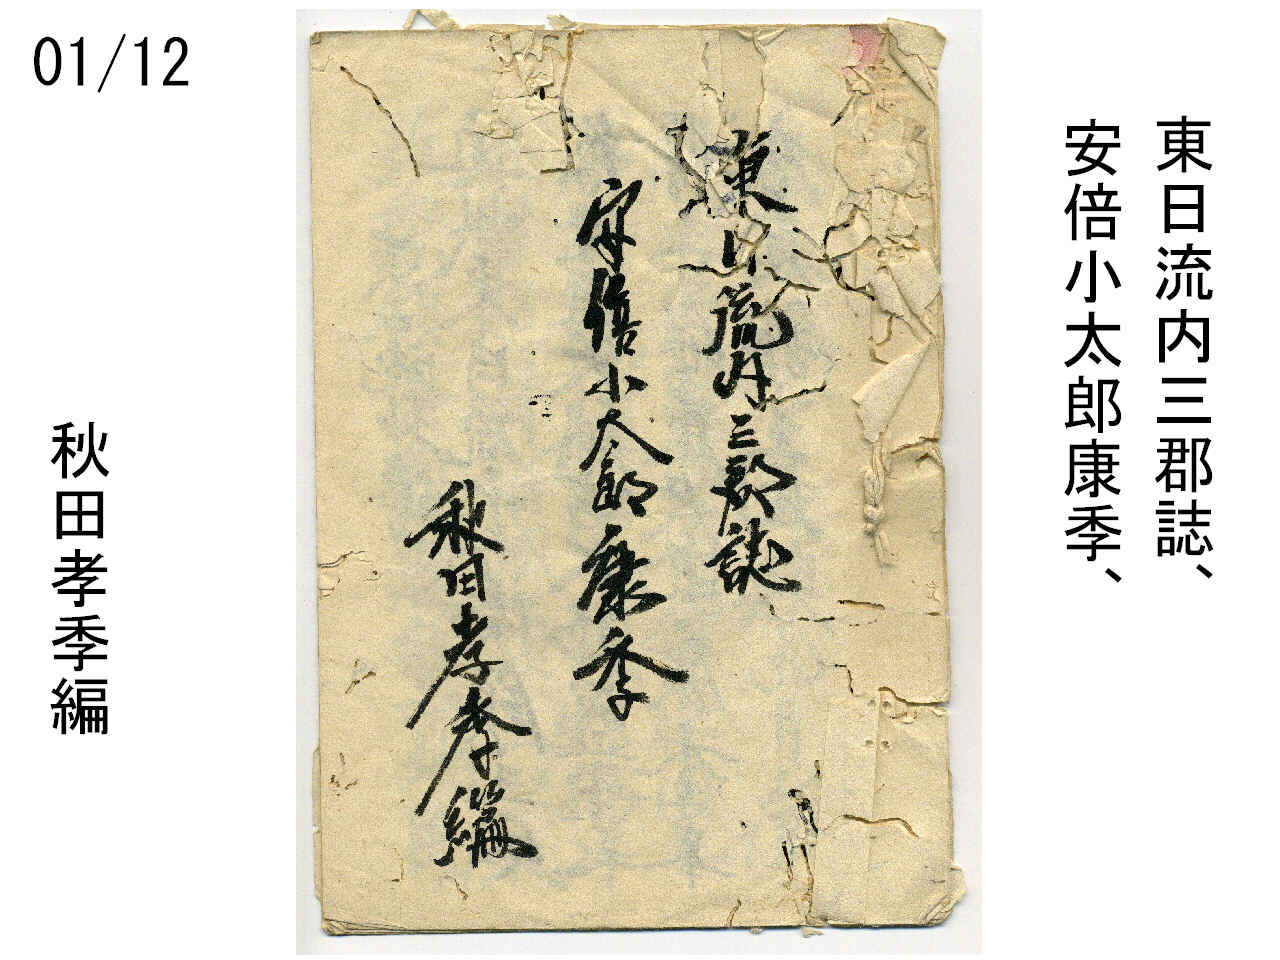 01/12
東日流内三郡誌、
安倍小太郎康季、
秋田孝季編
東日流内三郡誌
安倍小太郎康季
秋田孝季編